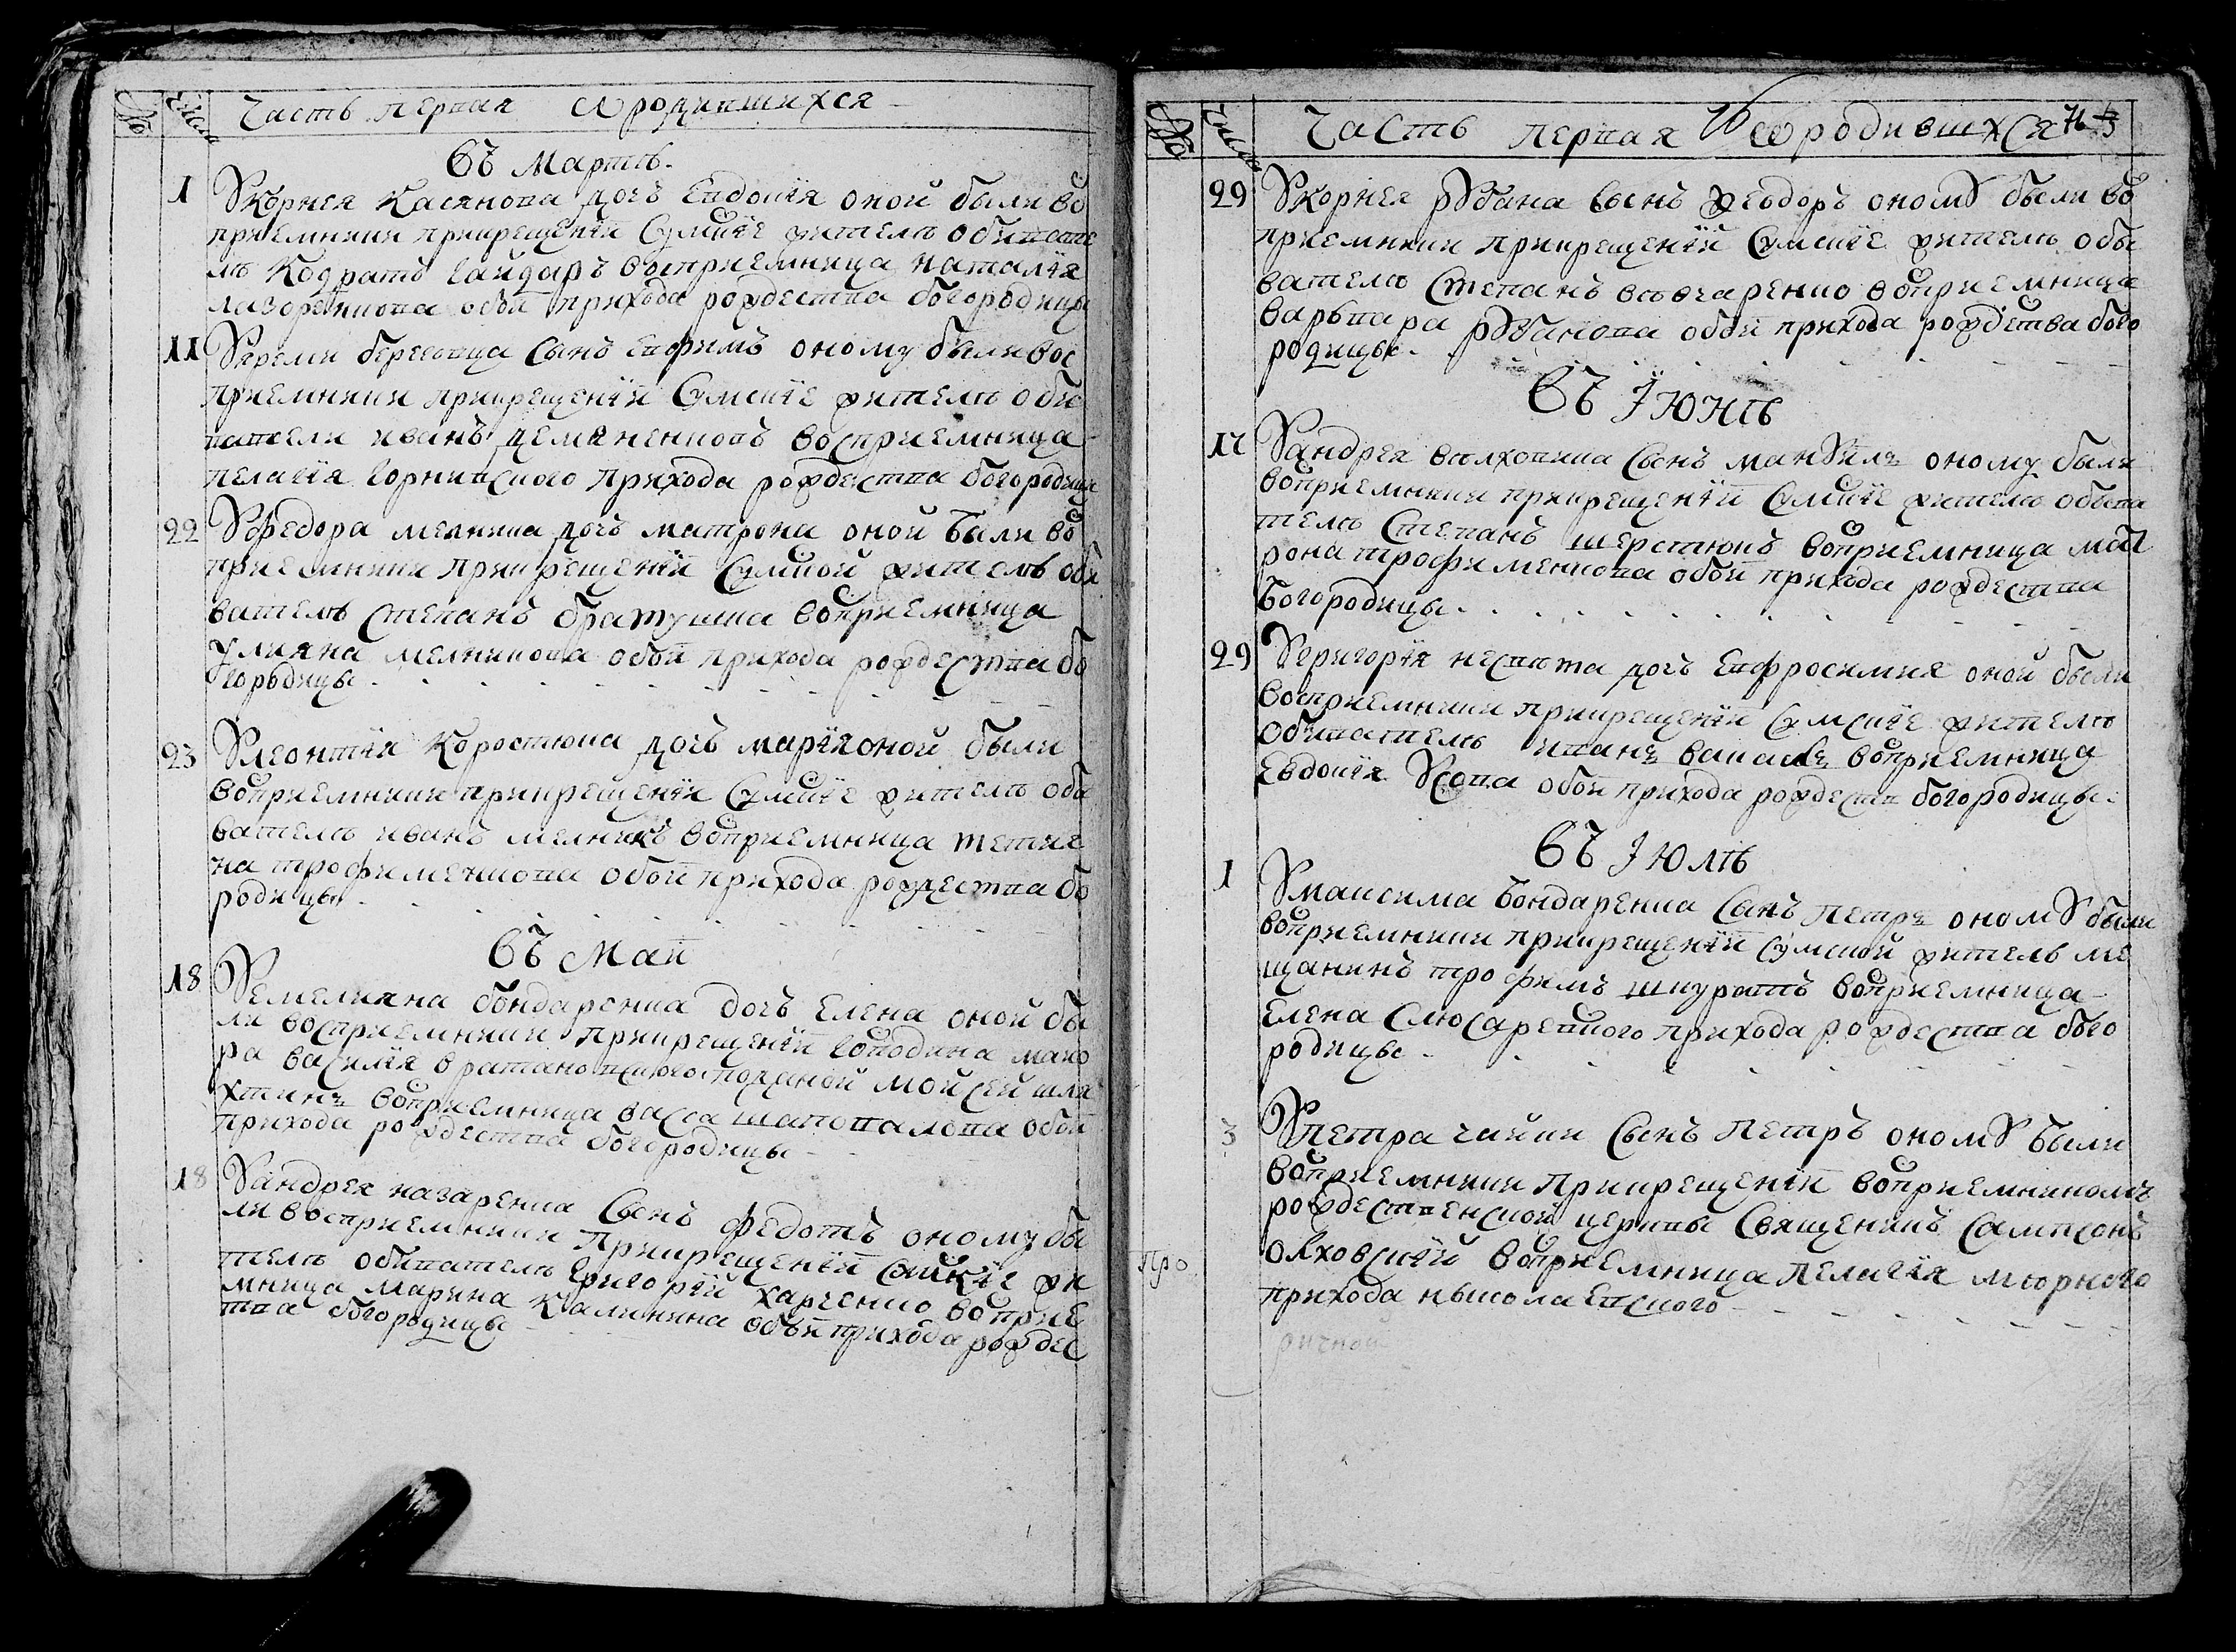 № Числа Часть первая о родившихся
Въ Мартѣ
1 Ꙋ корнея Касянова дочь Евдокїя оной были во
приемники прикрещенїи Сумскїе жителѣ обивате
лѣ Кодратъ Гайдаръ восприемница наталїя
лазоренкова обой прихода рождества богородицы
11 Ꙋ яреми береговца сынъ Ефимъ оному были вос
приемники прикрещенїи Сумскїе жителѣ оби
ватели иванъ демяненковъ восприемница
пелагїя прихода рождества богородицы
22 Ꙋ федора мелника дочь матрона оной были во
приемники прикрещенїи Сумской житель оби
ватель Степанъ братушка воприемница
улияна мелникова обой прихода рождества бо
городицы
23 Ꙋ леонтїя Коростюка дочь марїя оной были
воприемники прикрещенїи Сумскїе жителѣ оби
вателѣ иванъ мелникъ воприемница тетия
на трофименкова обой прихода рождества бо
родицы
Въ Маи
18 Ꙋ емелияна бондаренка дочь Елена оной бы
ли восприемники прикрещенїи господина маио
ра василїя подданой мойсей шля
хтинъ воприемница васса шаповалова обой
прихода рождества богородицы
18 Ꙋ андрея назаренка сынъ федотъ оному бы
ли восприемники прикрещенїи жи
телѣ обивателѣ григорїй харченко воприе
мница марина Калинина обой прихода рождес
тва богородицы
№ Числа Часть первая о родившихся
29 Ꙋ корнея рꙋбана сынъ феодоръ ономꙋ были во
приемники прикрещенїи Сумскїе жителѣ обы
вателѣ Степанъ воприемница
варвара рꙋбанова обой прихода рождства бого
родицы
Въ Iюнѣ
17 Ꙋ андрея сынъ манꙋилъ оному были
воприемники прикрещенїи Сумскїе жителѣ обыва
телѣ Степанъ шерстюкъ воприемница мат
рона трофименкова обой прихода рождества
Богородицы
29 Ꙋ григорїя дочь Евфросимия оной были
восприемники прикрещенїи Сумскїе жителѣ
обивателѣ иванъ воприемница
Евдокїя обой прихода рождеств богородицы
Въ Iюлѣ
1 Ꙋ максима бондаренка сынъ петръ ономꙋ были
воприемники прикрещенїи Сумской житель ме
щанинъ трофимъ шкуратъ воприемница
Елена прихода рождества бого
родицы
3 Ꙋ петра чайки сынъ петръ ономꙋ были
воприемники прикрещенїи воприемникомъ
рождественской церквы священикъ сампсонъ
ольховскїй воприемница пелагїя
прихода
Про